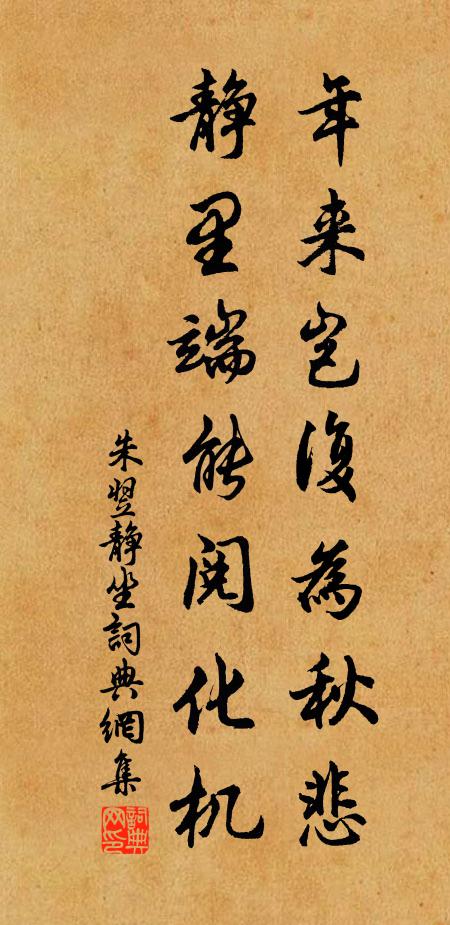 年来岂復為秋悲
静里端能阅化机
朱翌静坐詞典網集
詞典網印